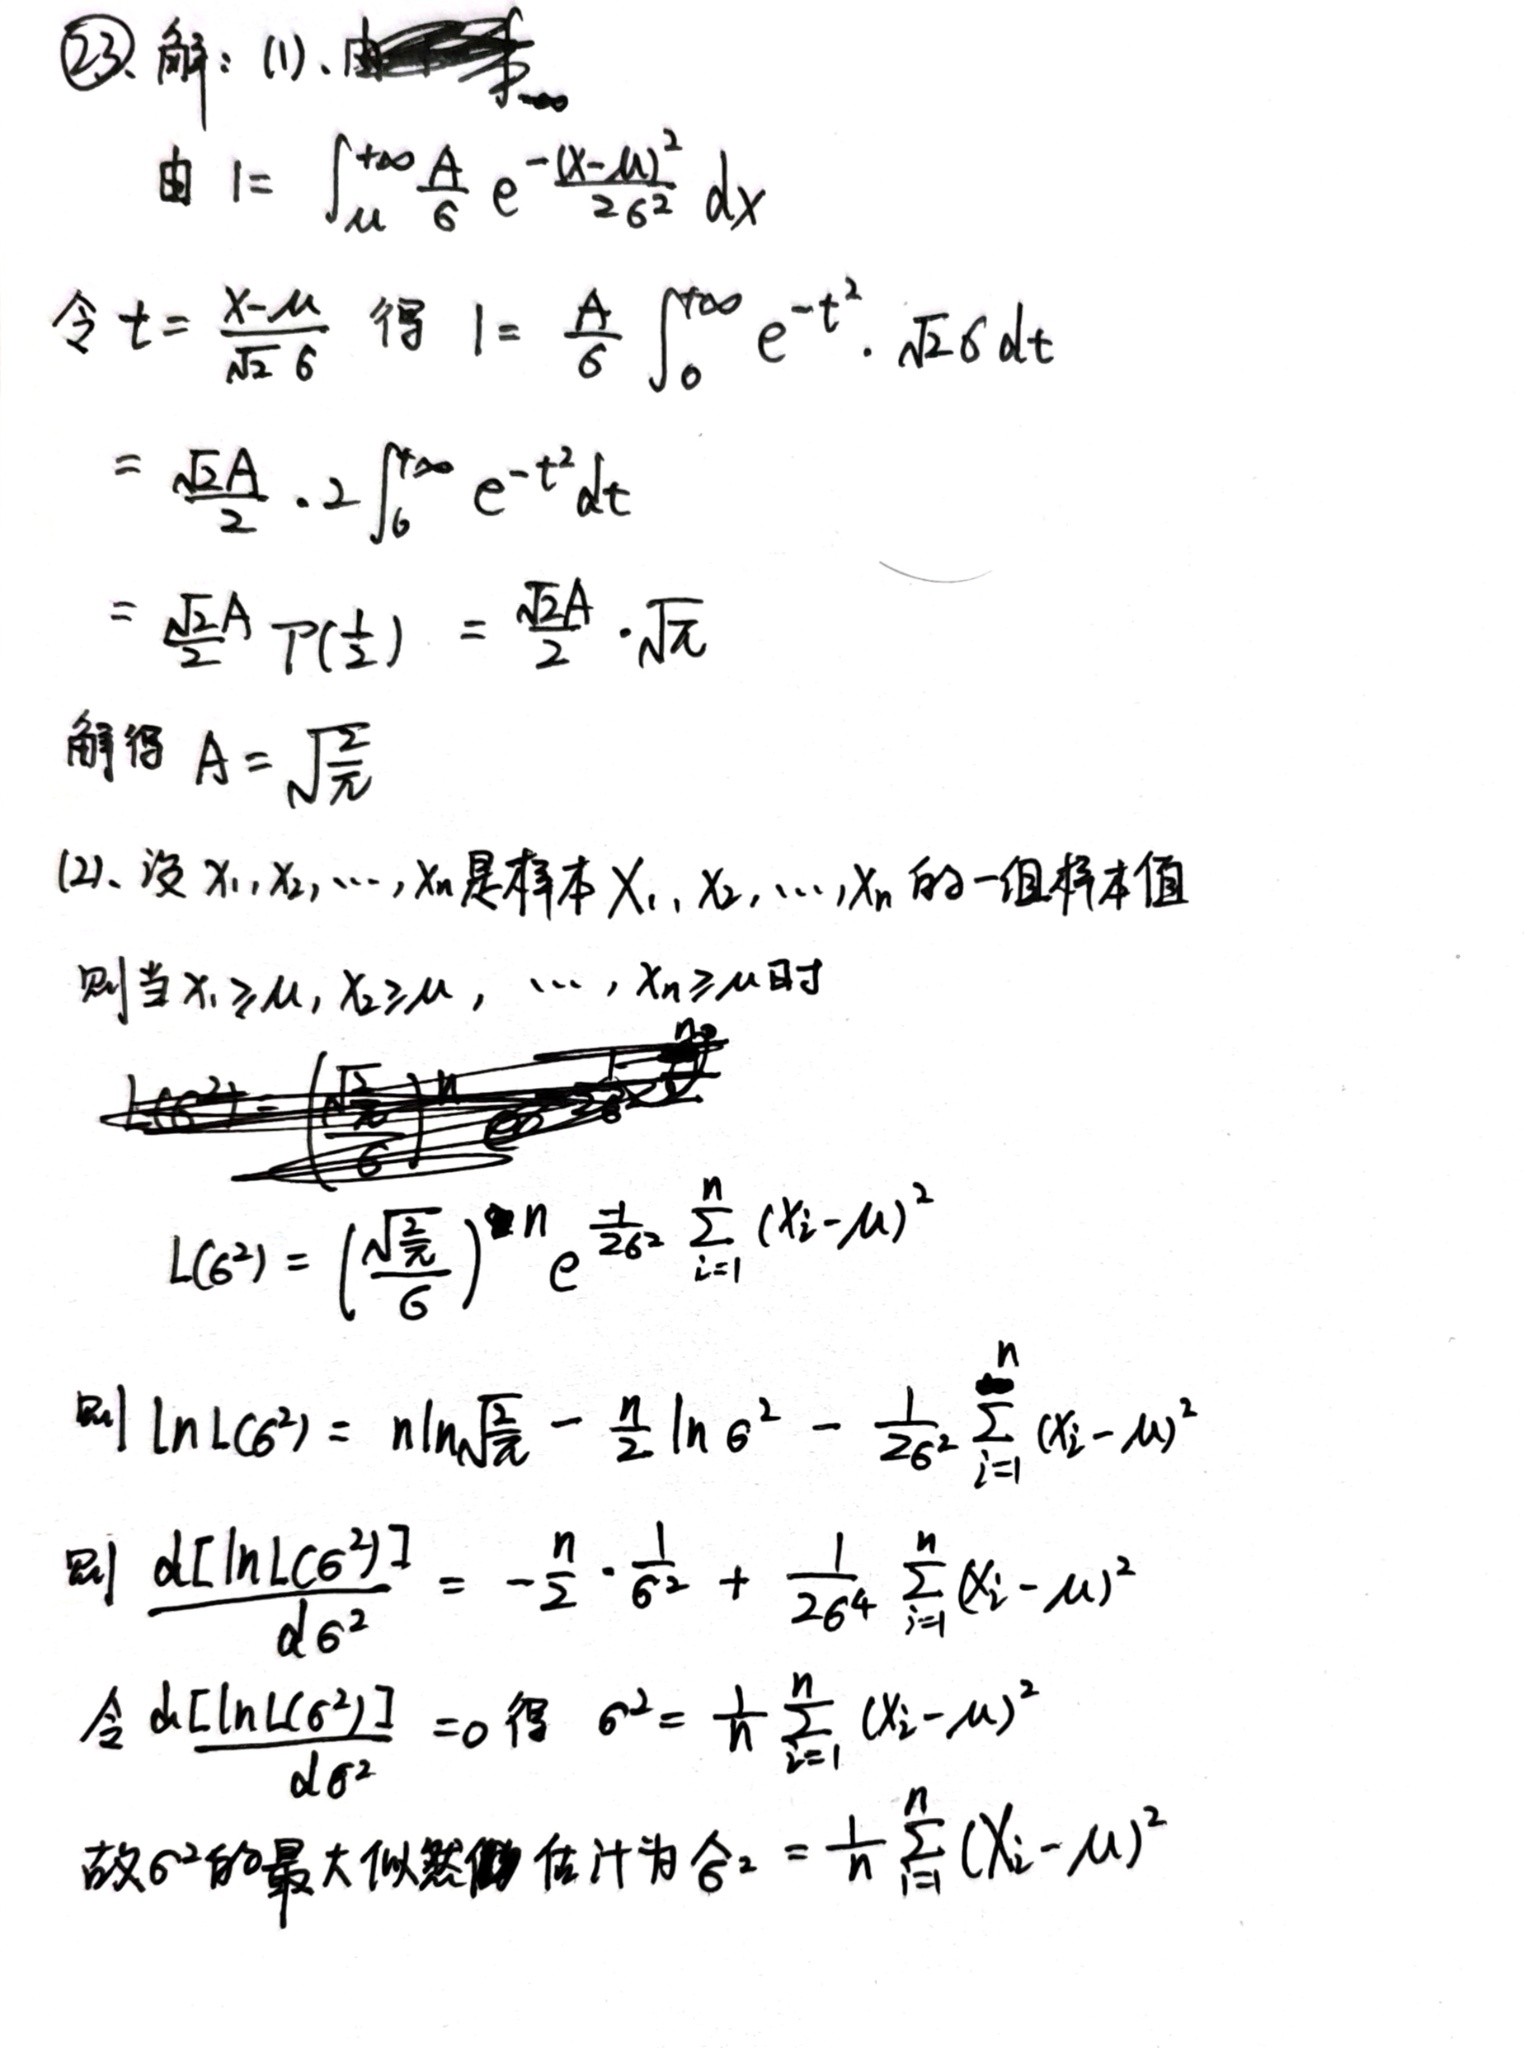 ㉓、解：(1)、由
由 1 = ∫_μ^{+∞} A/σ e^{-(x-μ)²/2σ²} dx
令 t = (x-μ)/(√2 σ) 得 1 = A/σ ∫_0^{+∞} e^{-t²} · √2 σ dt
= √2A/2 · 2∫_0^{+∞} e^{-t²} dt
= √2/2 A Γ(1/2) = √2A/2 · √π
解得 A = √(2/π)
(2)、设 x₁, x₂, …, xₙ 是样本 X₁, X₂, …, Xₙ 的一组样本值
则当 x₁ ≥ μ, x₂ ≥ μ, …, xₙ ≥ μ 时
L(σ²) = (√(2/π)/σ)^n e^{-1/2σ² ∑_{i=1}^n (xᵢ-μ)²}
则 ln L(σ²) = n ln√(2/π) - n/2 ln σ² - 1/2σ² ∑_{i=1}^n (xᵢ-μ)²
则 d[ln L(σ²)]/dσ² = -n/2 · 1/σ² + 1/2σ⁴ ∑_{i=1}^n (xᵢ-μ)²
令 d[ln L(σ²)]/dσ² = 0 得 σ² = 1/n ∑_{i=1}^n (xᵢ-μ)²
故 σ² 的最大似然估计为 σ̂² = 1/n ∑_{i=1}^n (Xᵢ-μ)²